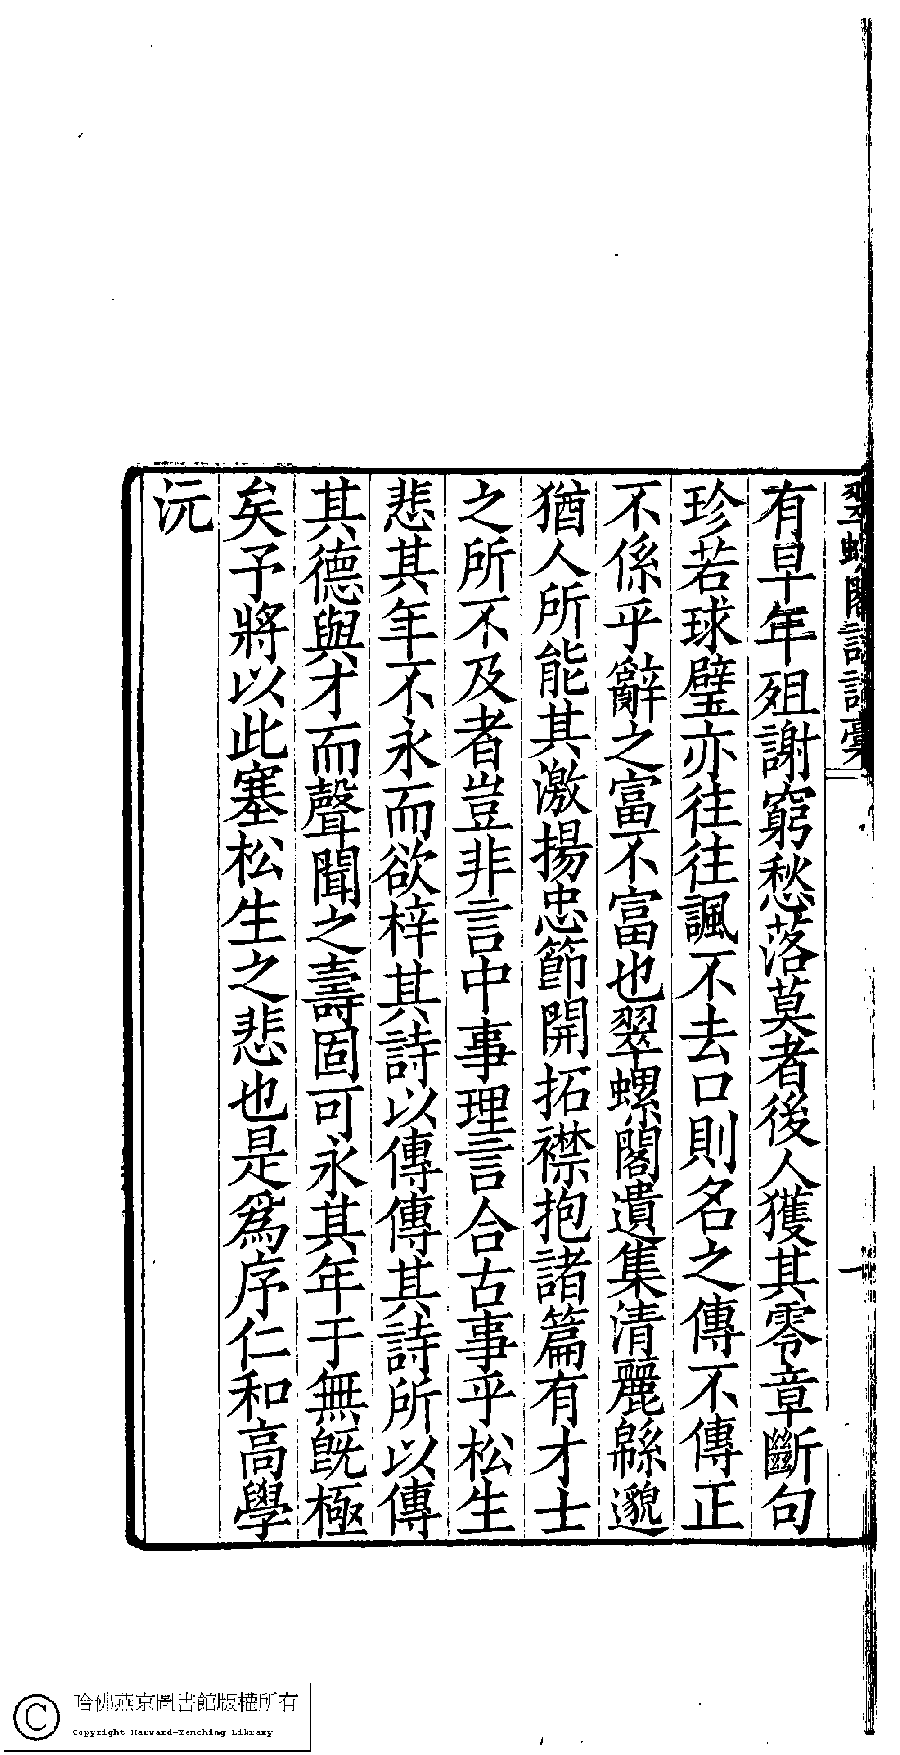 翠螺閣詩詞稾
一
有早年殂謝窮愁落莫者後人獲其零章斷句
珍若球璧亦往往諷不去口則名之傳不傳正
不係乎辭之富不富也翠螺閣遺集清麗緜邈
猶人所能其激揚忠節開拓襟抱諸篇有才士
之所不及者豈非言中事理言合古事乎松生
悲其年不永而欲梓其詩以傳傳其詩所以傳
其德與才而聲聞之壽固可永其年于無旣極
矣予將以此塞松生之悲也是爲序仁和高學
沅
哈佛燕京圖書館版權所有
Copyright Harvard-Yenching Library